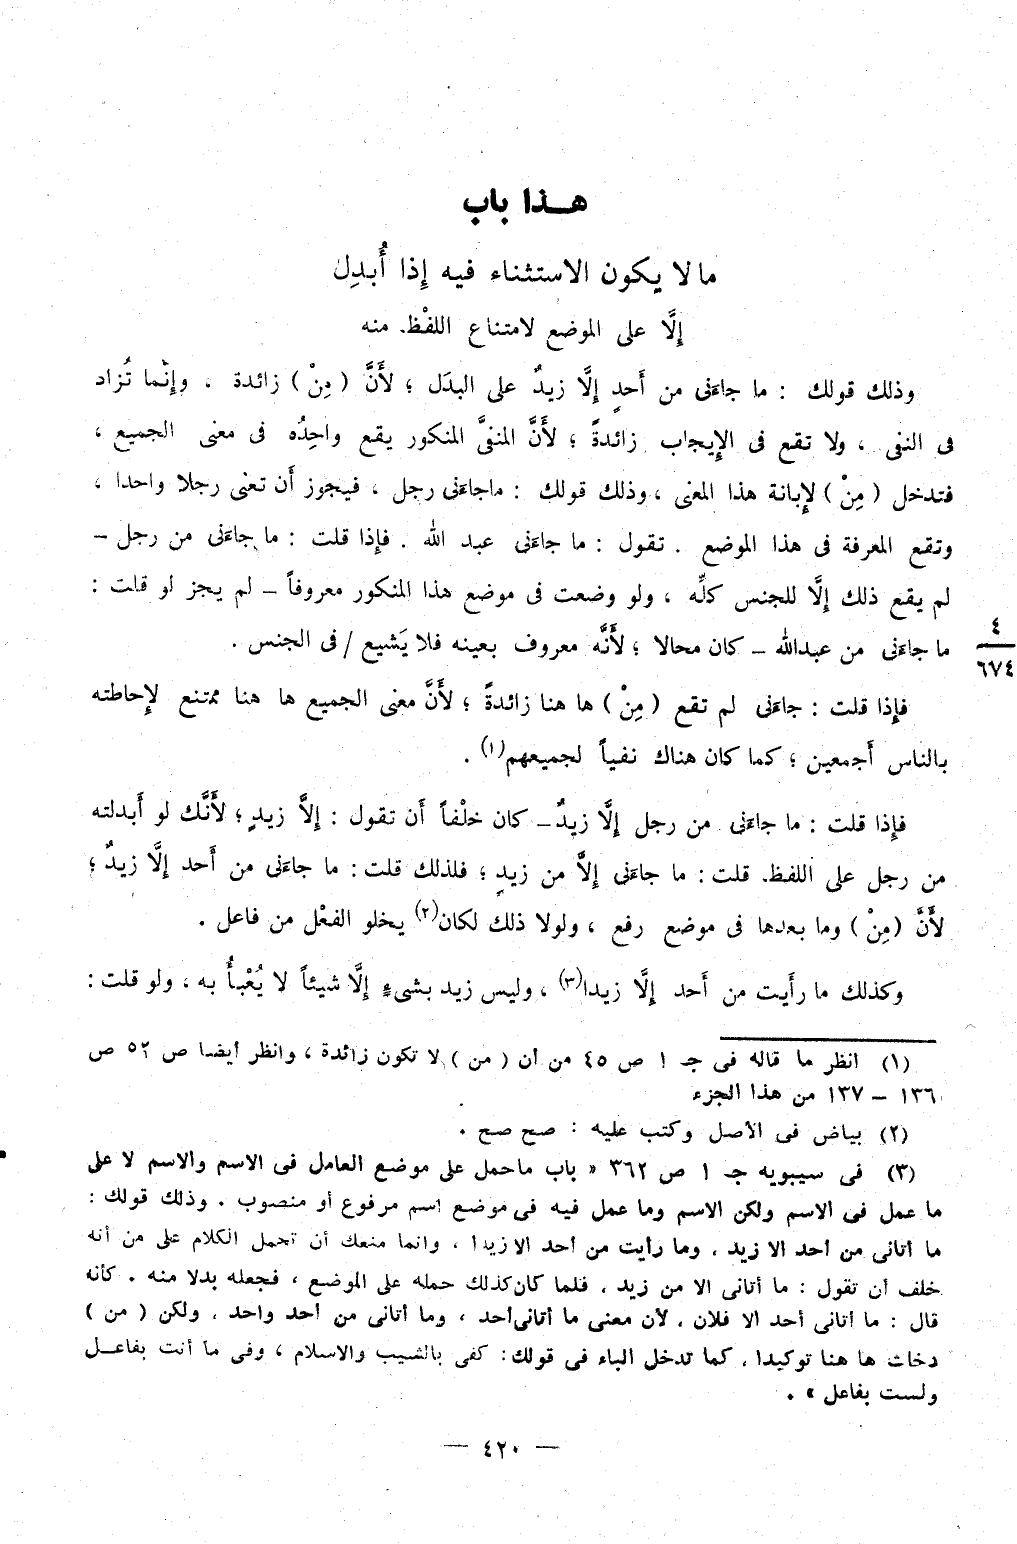 هـذا باب
ما لا يكون الاستثناء فيه إِذا أُبدِل
إِلَّا على الموضع لامتناع اللفْظ. منه
وذلك قولك : ما جاءَنى من أَحدٍ إِلَّا زيدٌ على البدَل ؛ لأَنَّ ( مِنْ ) زائدة ، وإِنَّما تُزاد
فى النفى ، ولا تقع فى الإِيجاب زائدةً ؛ لأَنَّ المنفىَّ المنكور يقع واحِدُه فى معنى الجميع ،
فتدخل ( مِنْ ) لإِبانة هذا المعنى ، وذلك قولك : ماجاءَنى رجل ، فيجوز أَن تعنى رجلا واحدا ،
وتقع المعرفة فى هذا الموضع . تقول : ما جاءَنى عبد الله . فإِذا قلت : ما جاءَنى من رجل –
لم يقع ذلك إِلَّا للجنس كلِّه ، ولو وضعت فى موضع هذا المنكور معروفاً – لم يجز لو قلت :
ما جاءَنى من عبدالله – كان محالا ؛ لأَنَّه معروف بعينه فلا يَشيع / فى الجنس .
٤
٦٧٤
فإِذا قلت : جاءَنى لم تقع ( مِنْ ) ها هنا زائدةً ؛ لأَنَّ معنى الجميع ها هنا ممتنع لإِحاطته
بالناس أَجمعين ؛ كما كان هناك نفياً لجميعهم(١) .
فإِذا قلت : ما جاءَنى من رجل إِلَّا زيدٌ – كان خلْفاً أَن تقول : إِلَّا زيدٍ ؛ لأَنَّك لو أَبدلته
من رجل على اللفظ. قلت : ما جاءَنى إِلَّا من زيدٍ ؛ فلذلك قلت : ما جاءَنى من أَحد إِلَّا زيدٌ ؛
لأَنَّ ( مِنْ ) وما بعدها فى موضع رفع ، ولولا ذلك لكان(٢) يخلو الفعْل من فاعل .
وكذلك ما رأَيت من أَحد إِلَّا زيدا(٣) ، وليس زيد بشىءٍ إِلَّا شيئاً لا يُعْبأُ به ، ولو قلت :
(١) انظر ما قاله فى جـ ١ ص ٤٥ من أن ( من ) لا تكون زائدة ، وانظر أيضا ص ٥٢ ص
١٣٦ – ١٣٧ من هذا الجزء
(٢) بياض فى الأصل وكتب عليه : صح صح .
(٣) فى سيبويه جـ ١ ص ٣٦٢ « باب ماحمل على موضع العامل فى الاسم والاسم لا على
ما عمل فى الاسم ولكن الاسم وما عمل فيه فى موضع اسم مرفوع أو منصوب . وذلك قولك :
ما أتانى من أحد الا زيد ، وما رأيت من أحد الا زيدا ، وانما منعك أن تحمل الكلام على من أنه
خلف أن تقول : ما أتانى الا من زيد ، فلما كان كذلك حمله على الموضع ، فجعله بدلا منه . كأنه
قال : ما أتانى أحد الا فلان ، لأن معنى ما أتانى أحد ، وما أتانى من أحد واحد ، ولكن ( من )
دخلت ها هنا توكيدا ، كما تدخل الباء فى قولك : كفى بالشيب والاسلام ، وفى ما أنت بفاعـل
ولست بفاعل » .
— ٤٢٠ —